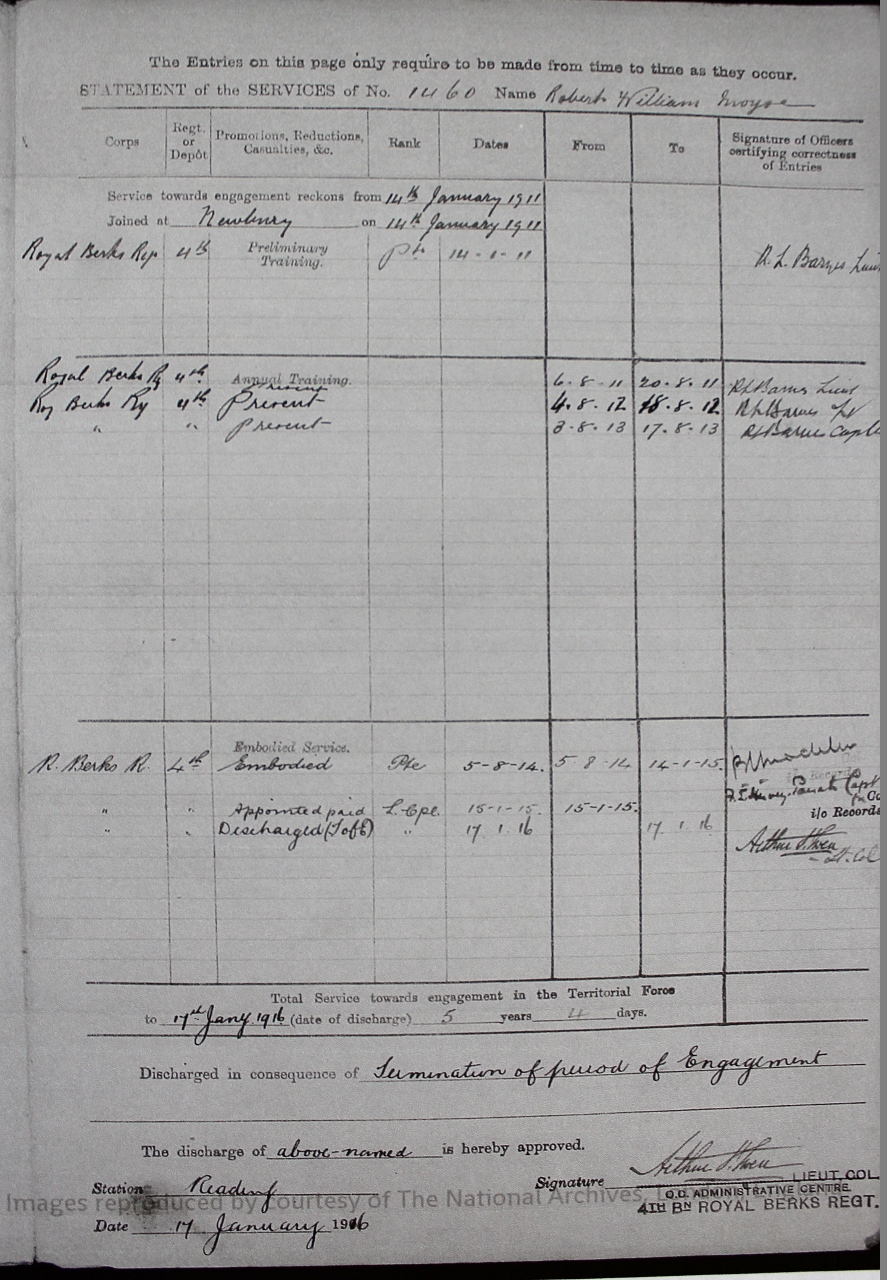 The Entries on this page only require to be made from time to time as they occur.
STATEMENT of the SERVICES of No. 1460 Name Robert William Moyse
Corps Regt. or Depôt Promotions, Reductions, Casualties, &c. Rank Dates From To Signature of Officers certifying correctness of Entries
Service towards engagement reckons from 14th January 1911
Joined at Newbury on 14th January 1911
Royal Berks Reg 4th Preliminary Training. Pte 14-1-11 R. L. Barnes Lieut
Royal Berks Rg 4th Annual Training. 6-8-11 20.8.11 RLBarnes Lieut
Roy Berks Rg 4th Present 4.8.12 18.8.12 RLBarnes
" " Present 3-8-13 17.8.13 RLBarnes Capt
Embodied Service.
R. Berks R. 4th Embodied Pte 5-8-14. 5 8 14 14-1-15.
Capt
for Co
" " Appointed paid L. Cpl. 15-1-15. 15-1-15. i/o Records
" " Discharged (T of E) " 17 1 16 17 1 16 Arthur
Lt. Col
Total Service towards engagement in the Territorial Force
to 17th Jany 1916 (date of discharge) 5 years 4 days.
Discharged in consequence of Termination of period of Engagement
The discharge of above-named is hereby approved.
Station Reading Signature Arthur LIEUT, COL.
Images reproduced by courtesy of The National Archives, L
O.C. ADMINISTRATIVE CENTRE
4TH BN ROYAL BERKS REGT.
Date 17 January 1916